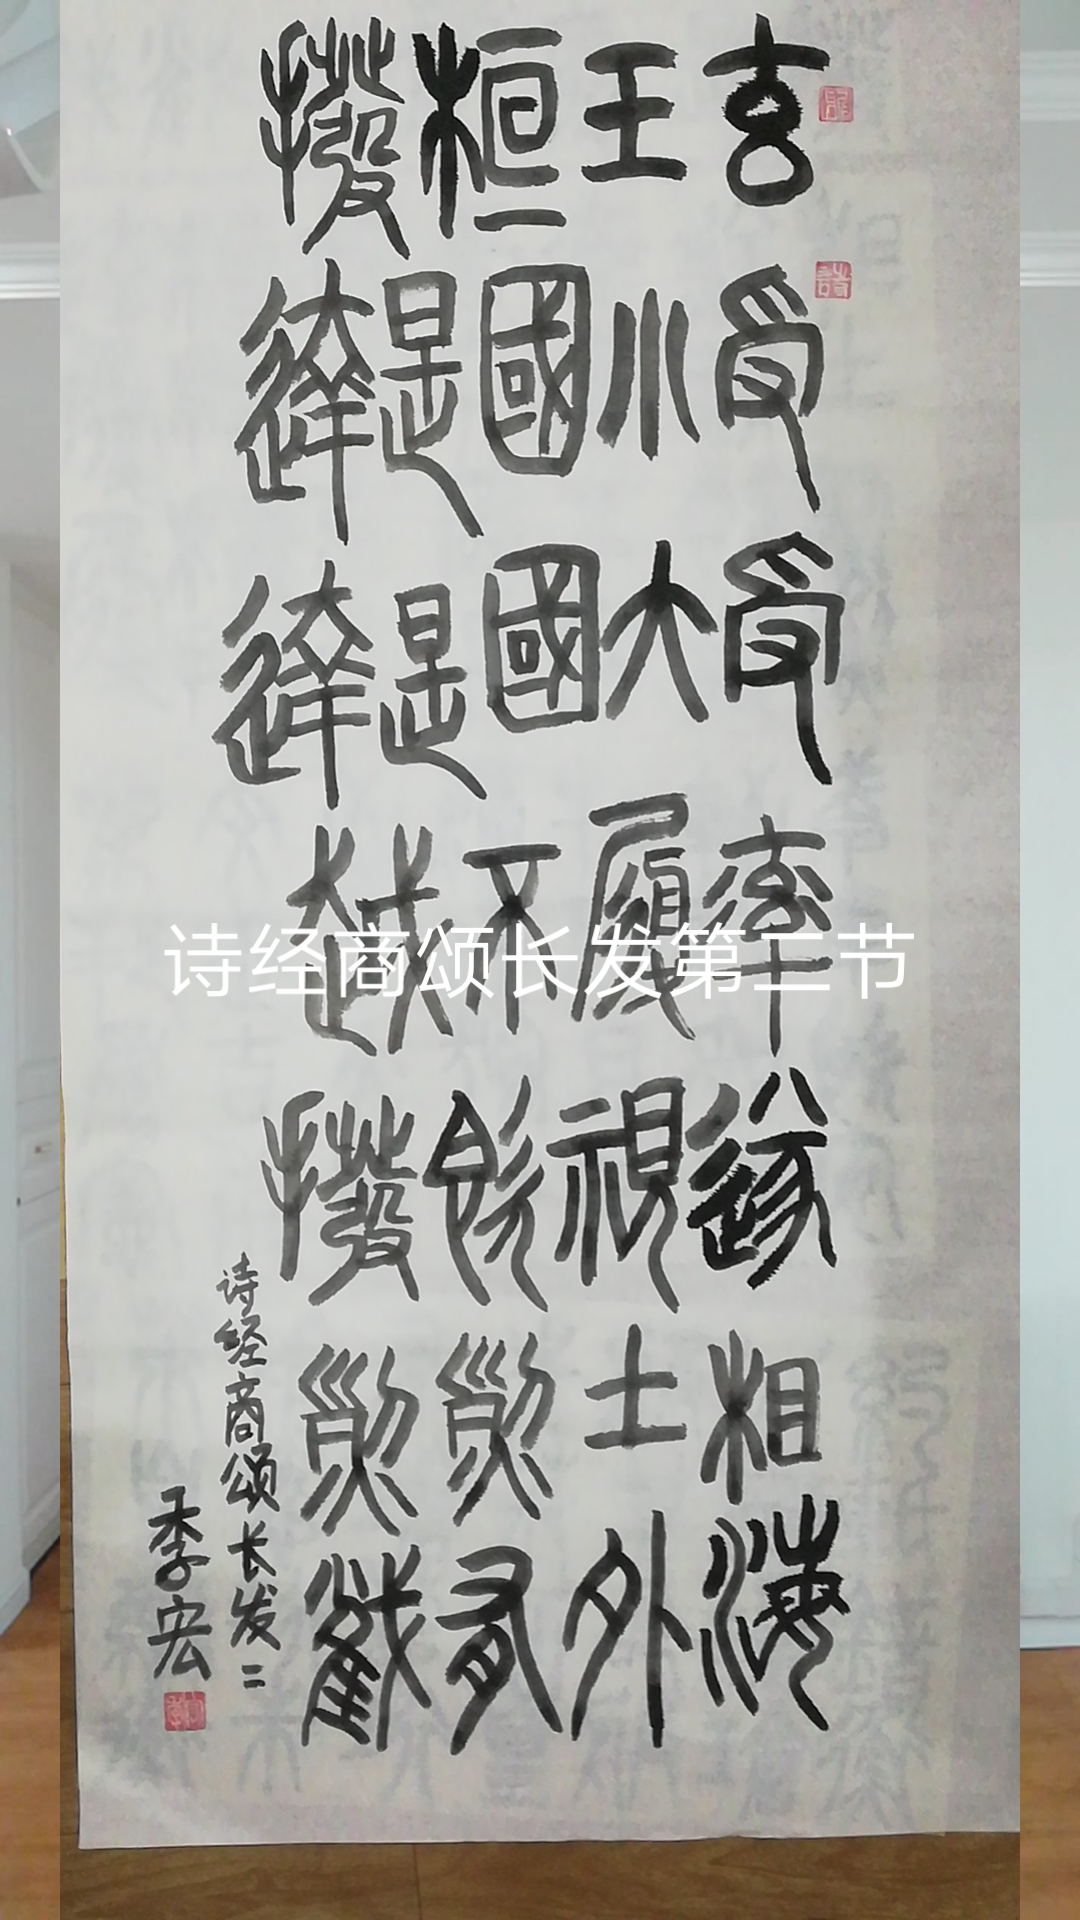 玄王桓撥
受小國是達
受大國是達
率履不越
遂視既撥
相土烈烈
海外有截
诗经商颂长发二
季宏
诗经商颂长发第二节